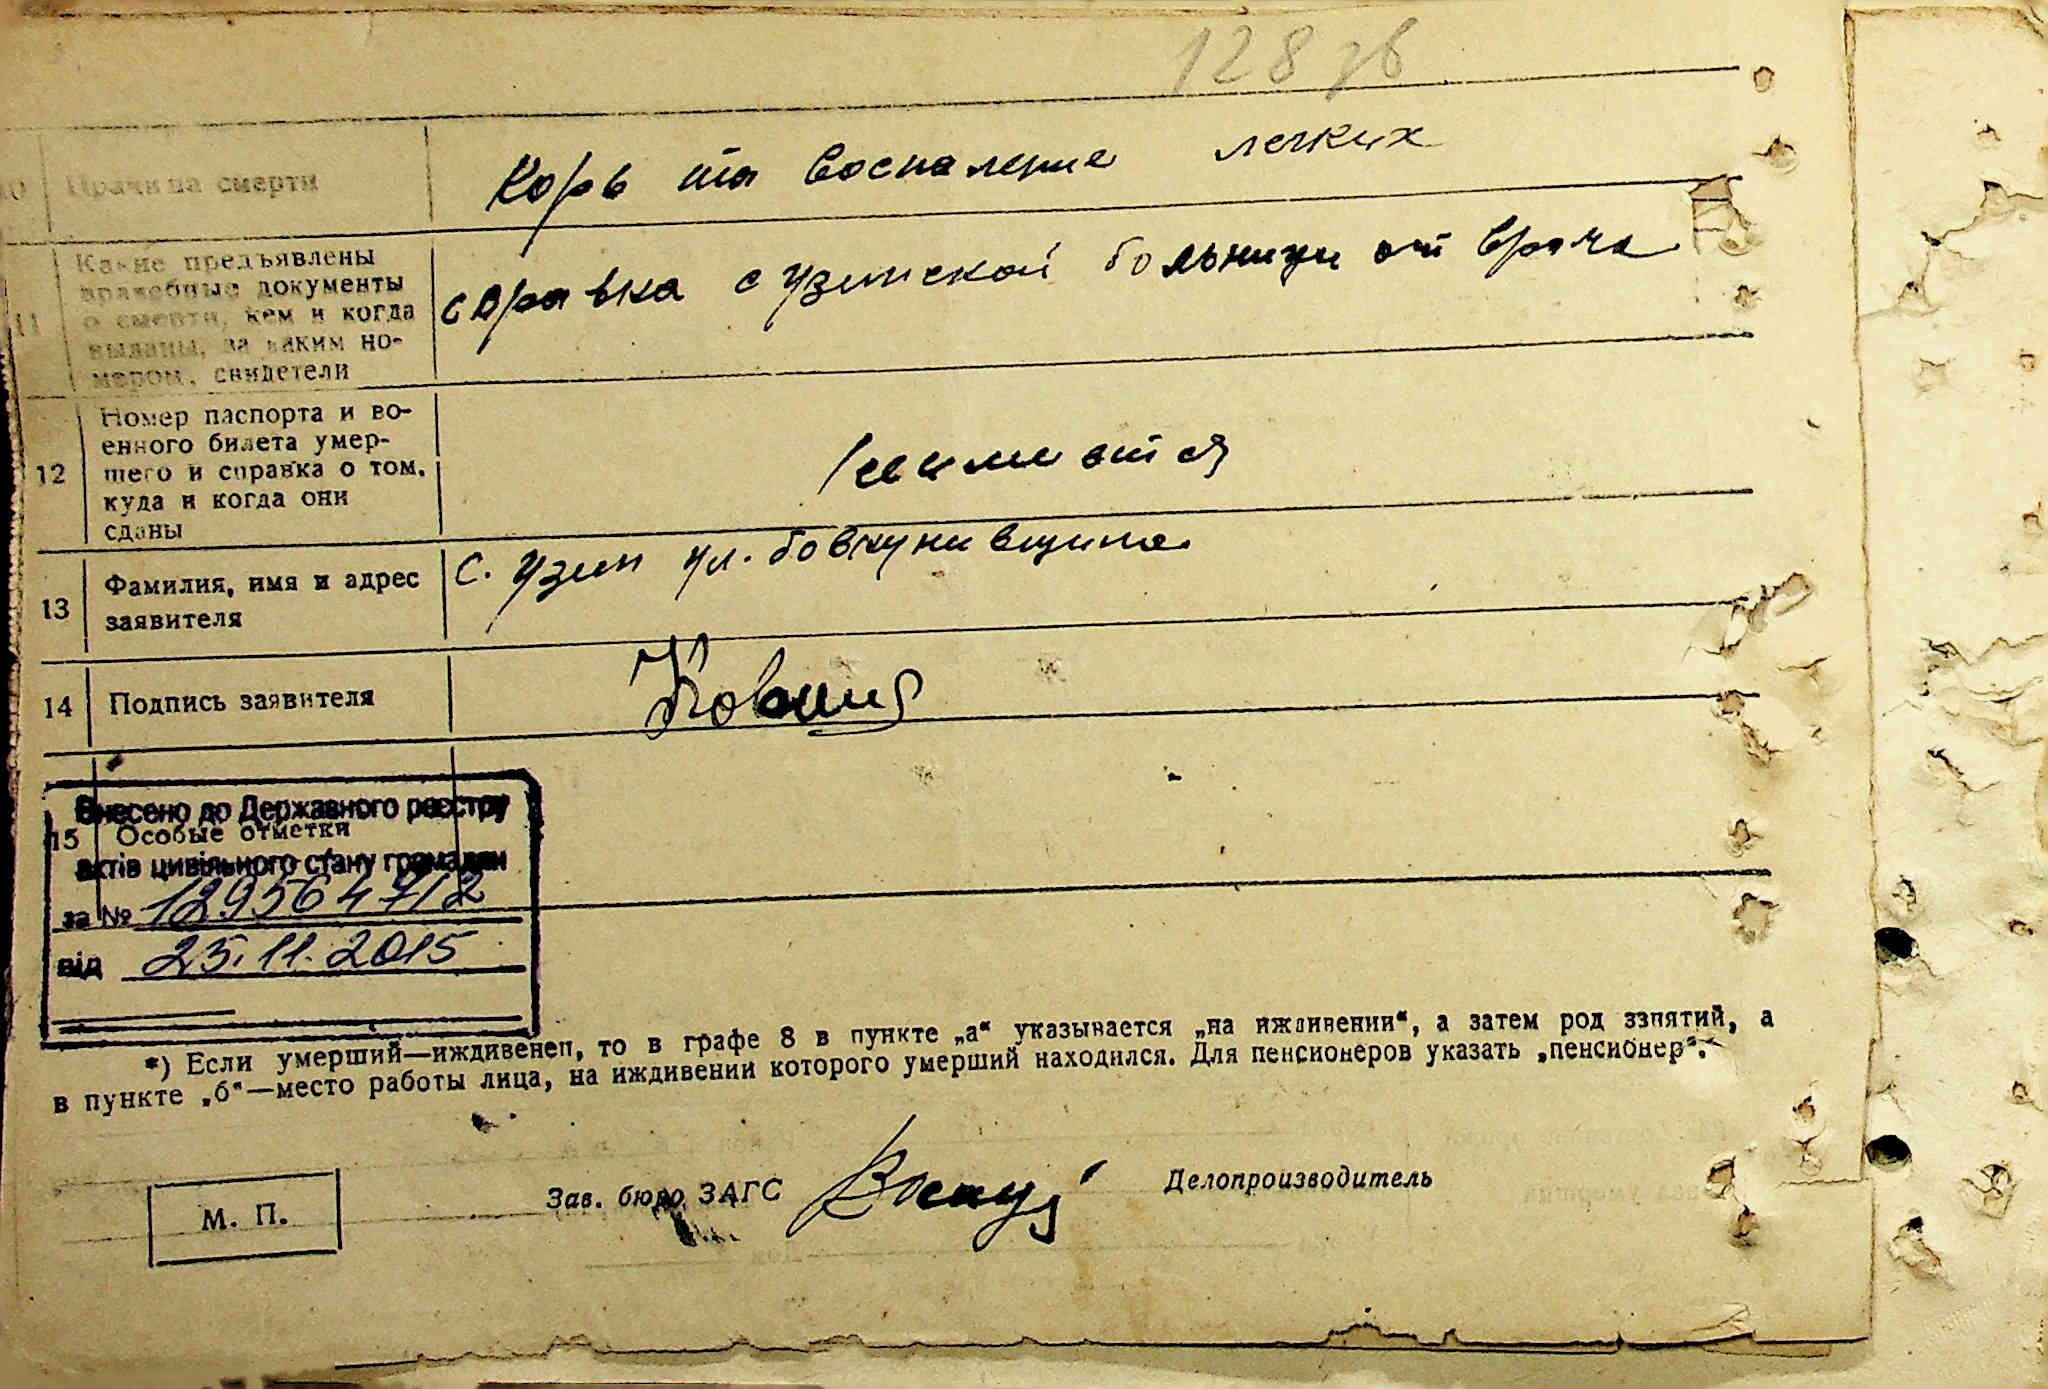 128 зв
10 Причина смерти Корь та воспаление легких
11 Какие предъявлены
врачебные документы
о смерти, кем и когда
выданы, за каким но-
мером, свидетели
справка с узинской больници от врача
12 Номер паспорта и во-
енного билета умер-
шего и справка о том,
куда и когда они
сданы
13 Фамилия, имя и адрес
заявителя
с. Узин ул.
14 Подпись заявителя
15 Особые отметки
Внесено до Державного реєстру
актів цивільного стану громадян
за № 129564712
від 25.11.2015
*) Если умерший—иждивенец, то в графе 8 в пункте „а“ указывается „на иждивении“, а затем род занятий, а
в пункте „б“—место работы лица, на иждивении которого умерший находился. Для пенсионеров указать „пенсионер“.
М. П.
Зав. бюро ЗАГС
Делопроизводитель